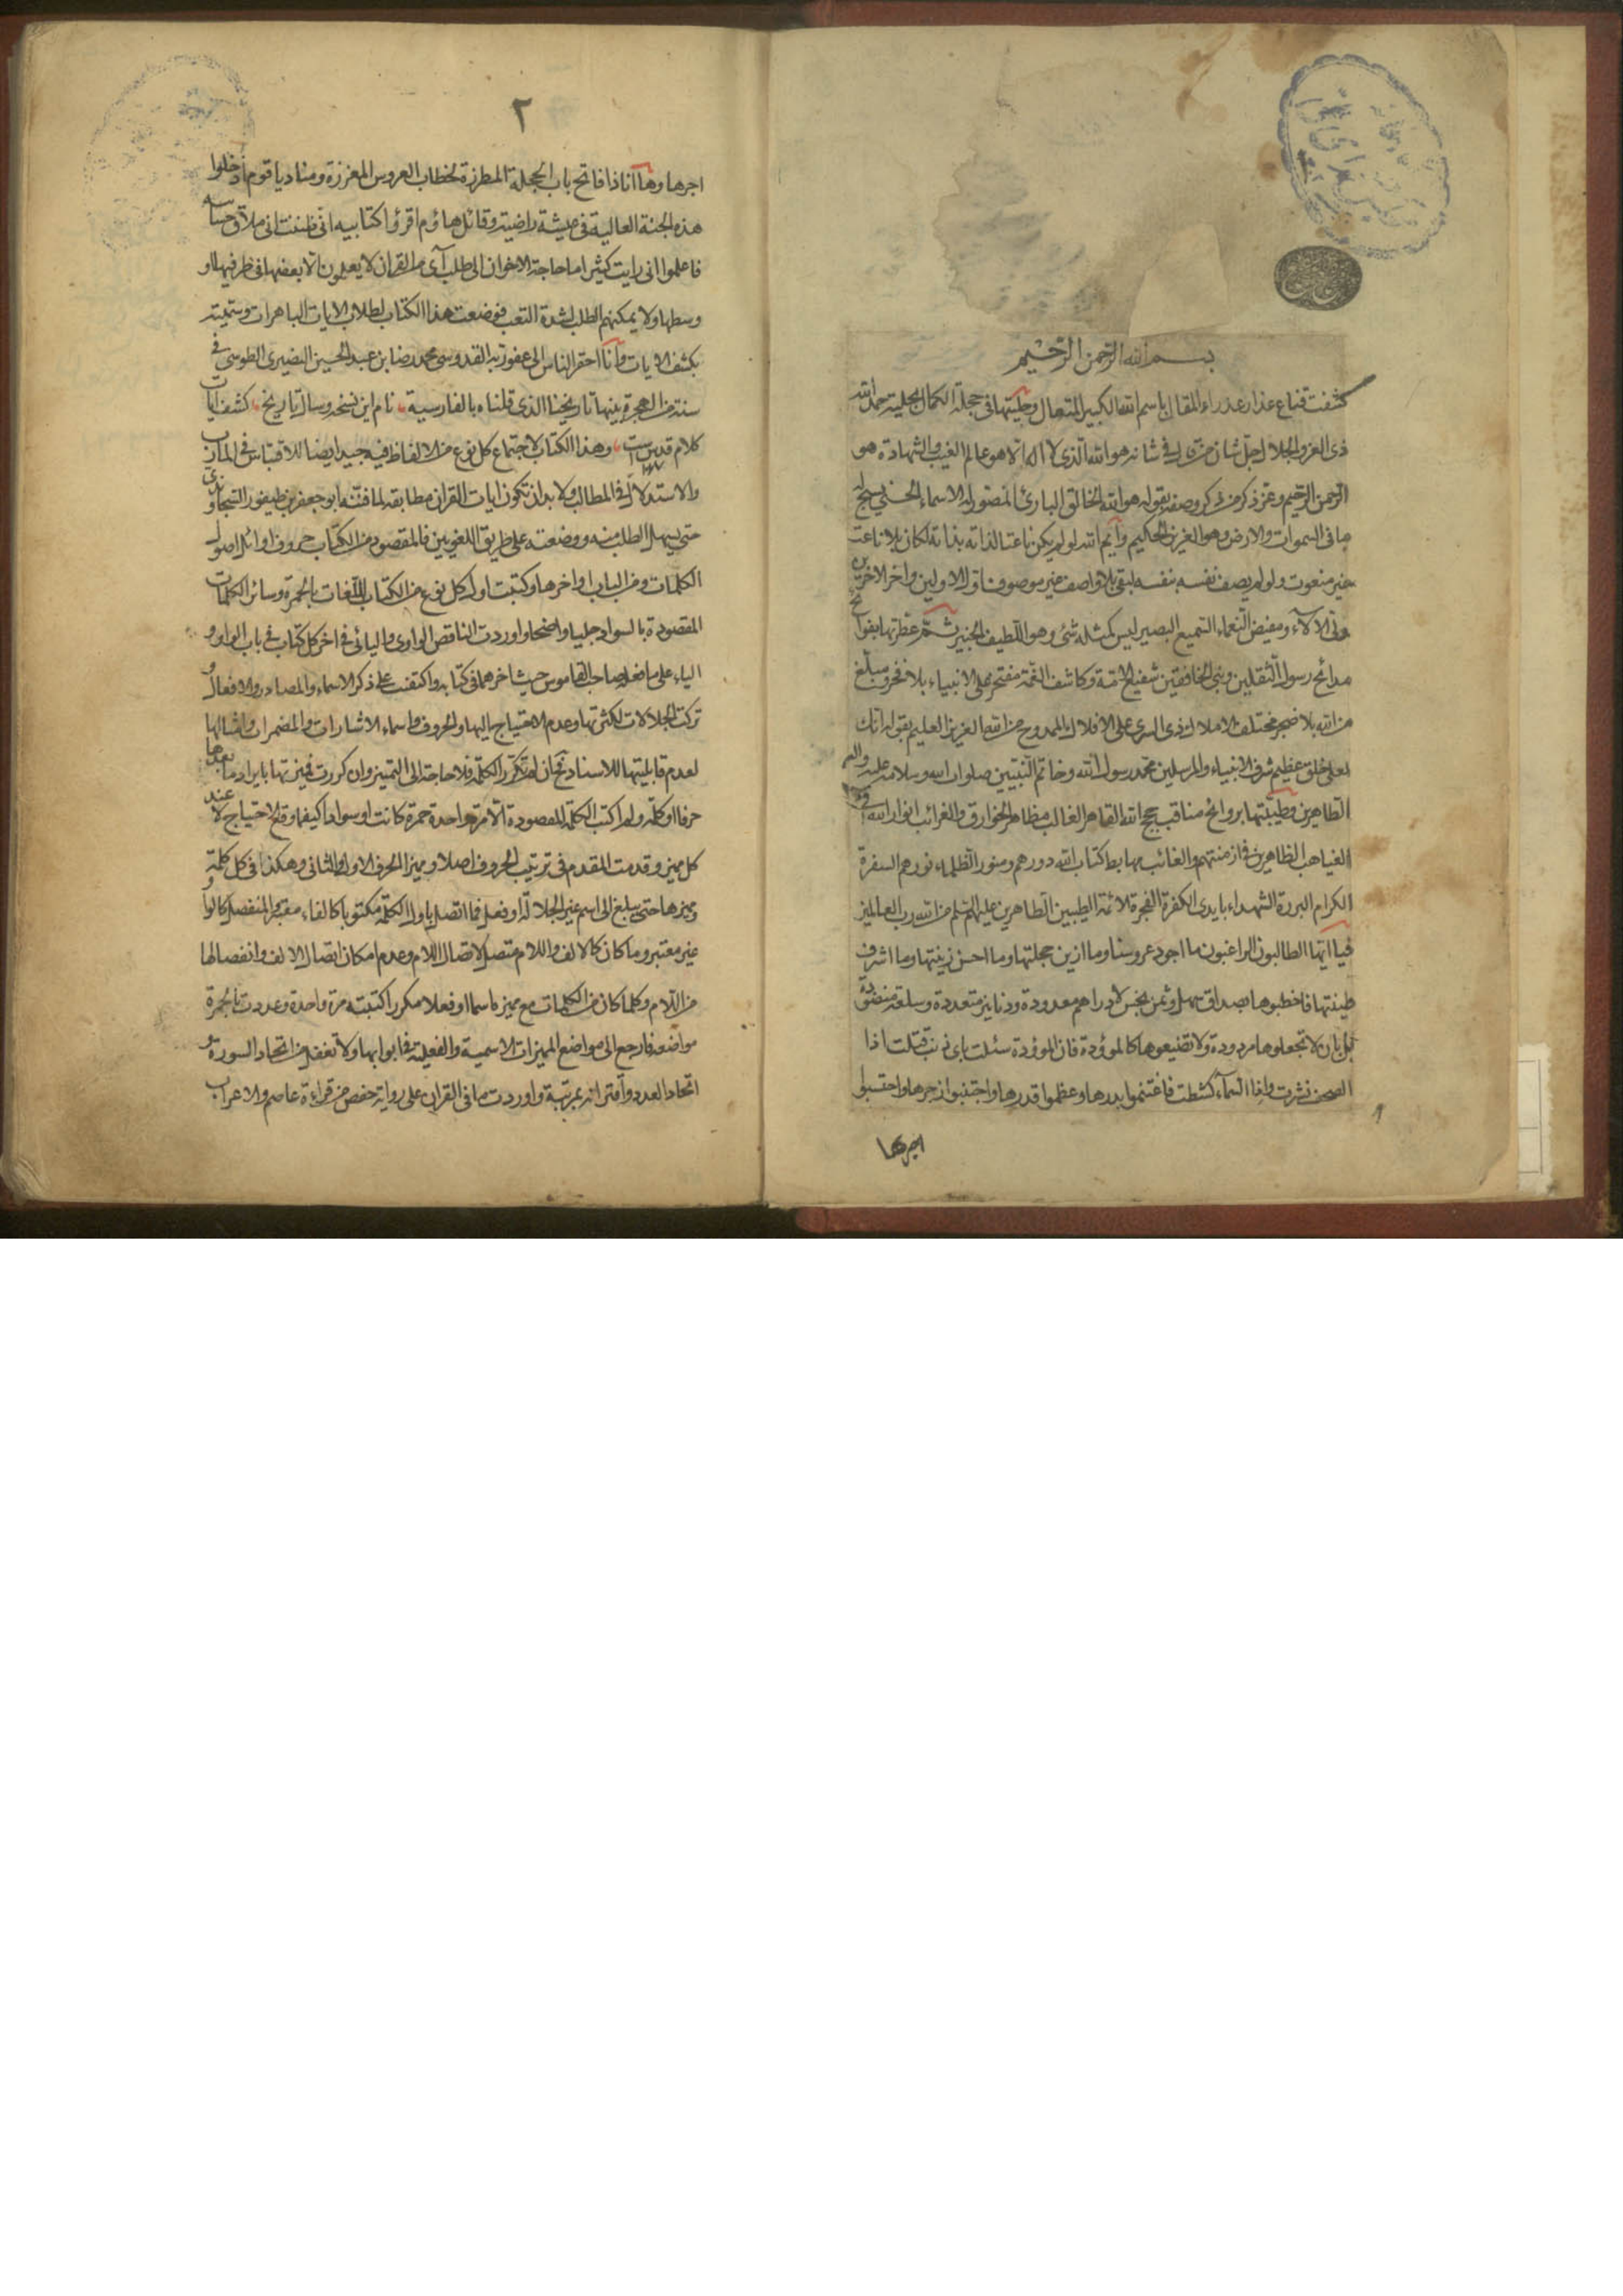 بسم الله الرحمن الرحيم
كشفت قناع عذار عذراء المقال باسم الله الكبير المتعال وحليتها في حجلة الكمال بحلية حمد الله
ذى العز والجلال جل شان من قال في شانه هو الله الذى لا اله الا هو عالم الغيب والشهادة هو
الرحمن الرحيم وعز ذكر من ذكر وصفه بقوله هو الله الخالق البارئ المصور له الاسماء الحسنى يسبح له
ما فى السموات والارض وهو العزيز الحكيم وايم الله لو لم يكن ناعتا لذاته بذاته لكان بلا ناعت
غير منعوت ولو لم يصف نفسه بنفسه لبقى بلا واصف غير موصوف اول الاولين واخر الاخرين
مولى الآلاء ومفيض النعماء السميع البصير ليس كمثله شئ وهو اللطيف الخبير ثم عطرتها بفوائح
مدائح رسول الثقلين ونبى الخافقين شفيع الامة وكاشف الغمة مفتخر على الانبياء بلا فخر ومبلغ
من الله بلا ضجر مختلف الاملاك ذى السرى على الافلاك الممدوح من الله العزيز العليم بقوله انك
لعلى خلق عظيم شرف الانبياء والمرسلين محمد رسول الله وخاتم النبيين صلوات الله وسلامه عليه واله
الطاهرين وطيبتها بروائح مناقب حجج الله القاهر الغالب مظاهر الخوارق والغرائب انوار الله فى
الغياهب الظاهرين فى ازمنتهم والغائب مهابط كتاب الله دورهم ومنور الظلماء نورهم السفرة
الكرام البررة الشهداء بايدى الكفرة الفجرة الائمة الطيبين الطاهرين عليهم السلم من الله رب العالمين
فيا ايها الطالبون الراغبون ما اجود عروسنا وما ازين حجلتها وما احسن زينتها وما اشرف
طينتها فاخطبوها بصداق سهل وثمن بخس لا دراهم معدودة ودنانير متعددة وسلعة منضدة
بل بان لا تجعلوها مردودة ولا تضيعوها كالموؤدة فان الموؤدة سئلت باى ذنب قتلت اذا
الصحف نشرت واذا السماء كشطت فاغتنموا بدرها وعظموا قدرها واجتنبوا زجرها واحتسبوا
اجرها
٢
اجرها وها انا ذا فاتح باب الحجلة المطرزة لخطاب العروس المعززة ومناد يا قوم ادخلوا
هذه الجنة العالية فى عيشة راضية وقائل هاؤم اقرؤا كتابيه انى ظننت انى ملاق حسابيه
فاعلموا انى رايت كثيرا ما حاجة الاخوان الى طلب آى من القران لا يعلمون الا بعضها فى طرفيها او
وسطها ولا يمكنهم الطلب لشدة التعب فوضعت هذا الكتاب لطلاب الايات الباهرات وسميته
بكشف الايات وانا احقر الناس الى عفو ربه القدوسى محمد رضا بن عبد الحسين النصيرى الطوسى فى
سنة من الهجرة بينها تاريخنا الذى قلناه بالفارسية نام اين نسخه وسال تاريخ كشف آيات
كلام قدس ست وهذا الكتاب لاجتماع كل نوع من الالفاظ فيه جيد ايضا للاقتباس فى المآرب
والاستدلال فى المطالب ولا بد ان تكون ايات القران مطابقه لما فننه ابو جعفر بن طيفور السجاوندى
حتى يسهل الطلب منه ووضعته على طريق اللغويين فالمقصود من الكتاب حروف اوائل اصول
الكلمات ومن الباب اواخرها وكتبت اول كل نوع من الكتاب اللغات بالحمرة وسائر الكلمات
المقصودة بالسواد جليا واضحا واوردت الناقص الواوى واليائى فى اخر كل كتاب فى باب الواو و
الياء على ما فعله صاحب القاموس حيث اخرهما فى كتابه واكتفيت على ذكر الاسماء والمصادر والافعال و
تركت الجلالات لكثرتها وعدم الاحتياج اليها والحروف واسماء الاشارات والمضمرات وامثالها
لعدم قابليتها للاسناد ثم ان لم تتكرر الكلمة فلا حاجة الى التمييز وان كررت فميزتها بايراد ما بعدها
حرفا او كلمة ولم اكتب الكلمة المقصودة الا مرة واحدة حمرة كانت او سوادا كيفما وقع الاحتياج لا عند
كل مميز وقدمت المقدم فى ترتيب الحروف اصلا ومميز الحرف الاول والثانى وهكذا فى كل كلمة
ومميزها حتى يبلغ الى اسم غير الجلالة او فعل فما اتصل باول الكلمة مكتوبا كالفاء معتبر والمنفصل كالواو
غير معتبر وما كان كالالف واللام متصل لاتصال اللام وعدم امكان اتصال الالف وانفصالها
من اللام وكلما كان من الكلمات مع مميزه اسما او فعلا مكررا كتبته مرة واحدة وعددت بالحمرة
مواضعه فارجع الى مواضع المميزات الاسمية والفعلية فى ابوابها ولا تغفل من اتحاد السورة و
اتحاد العدد واقترانه بمرتبة واوردت ما فى القران على رواية حفص من قراءة عاصم والاعراب